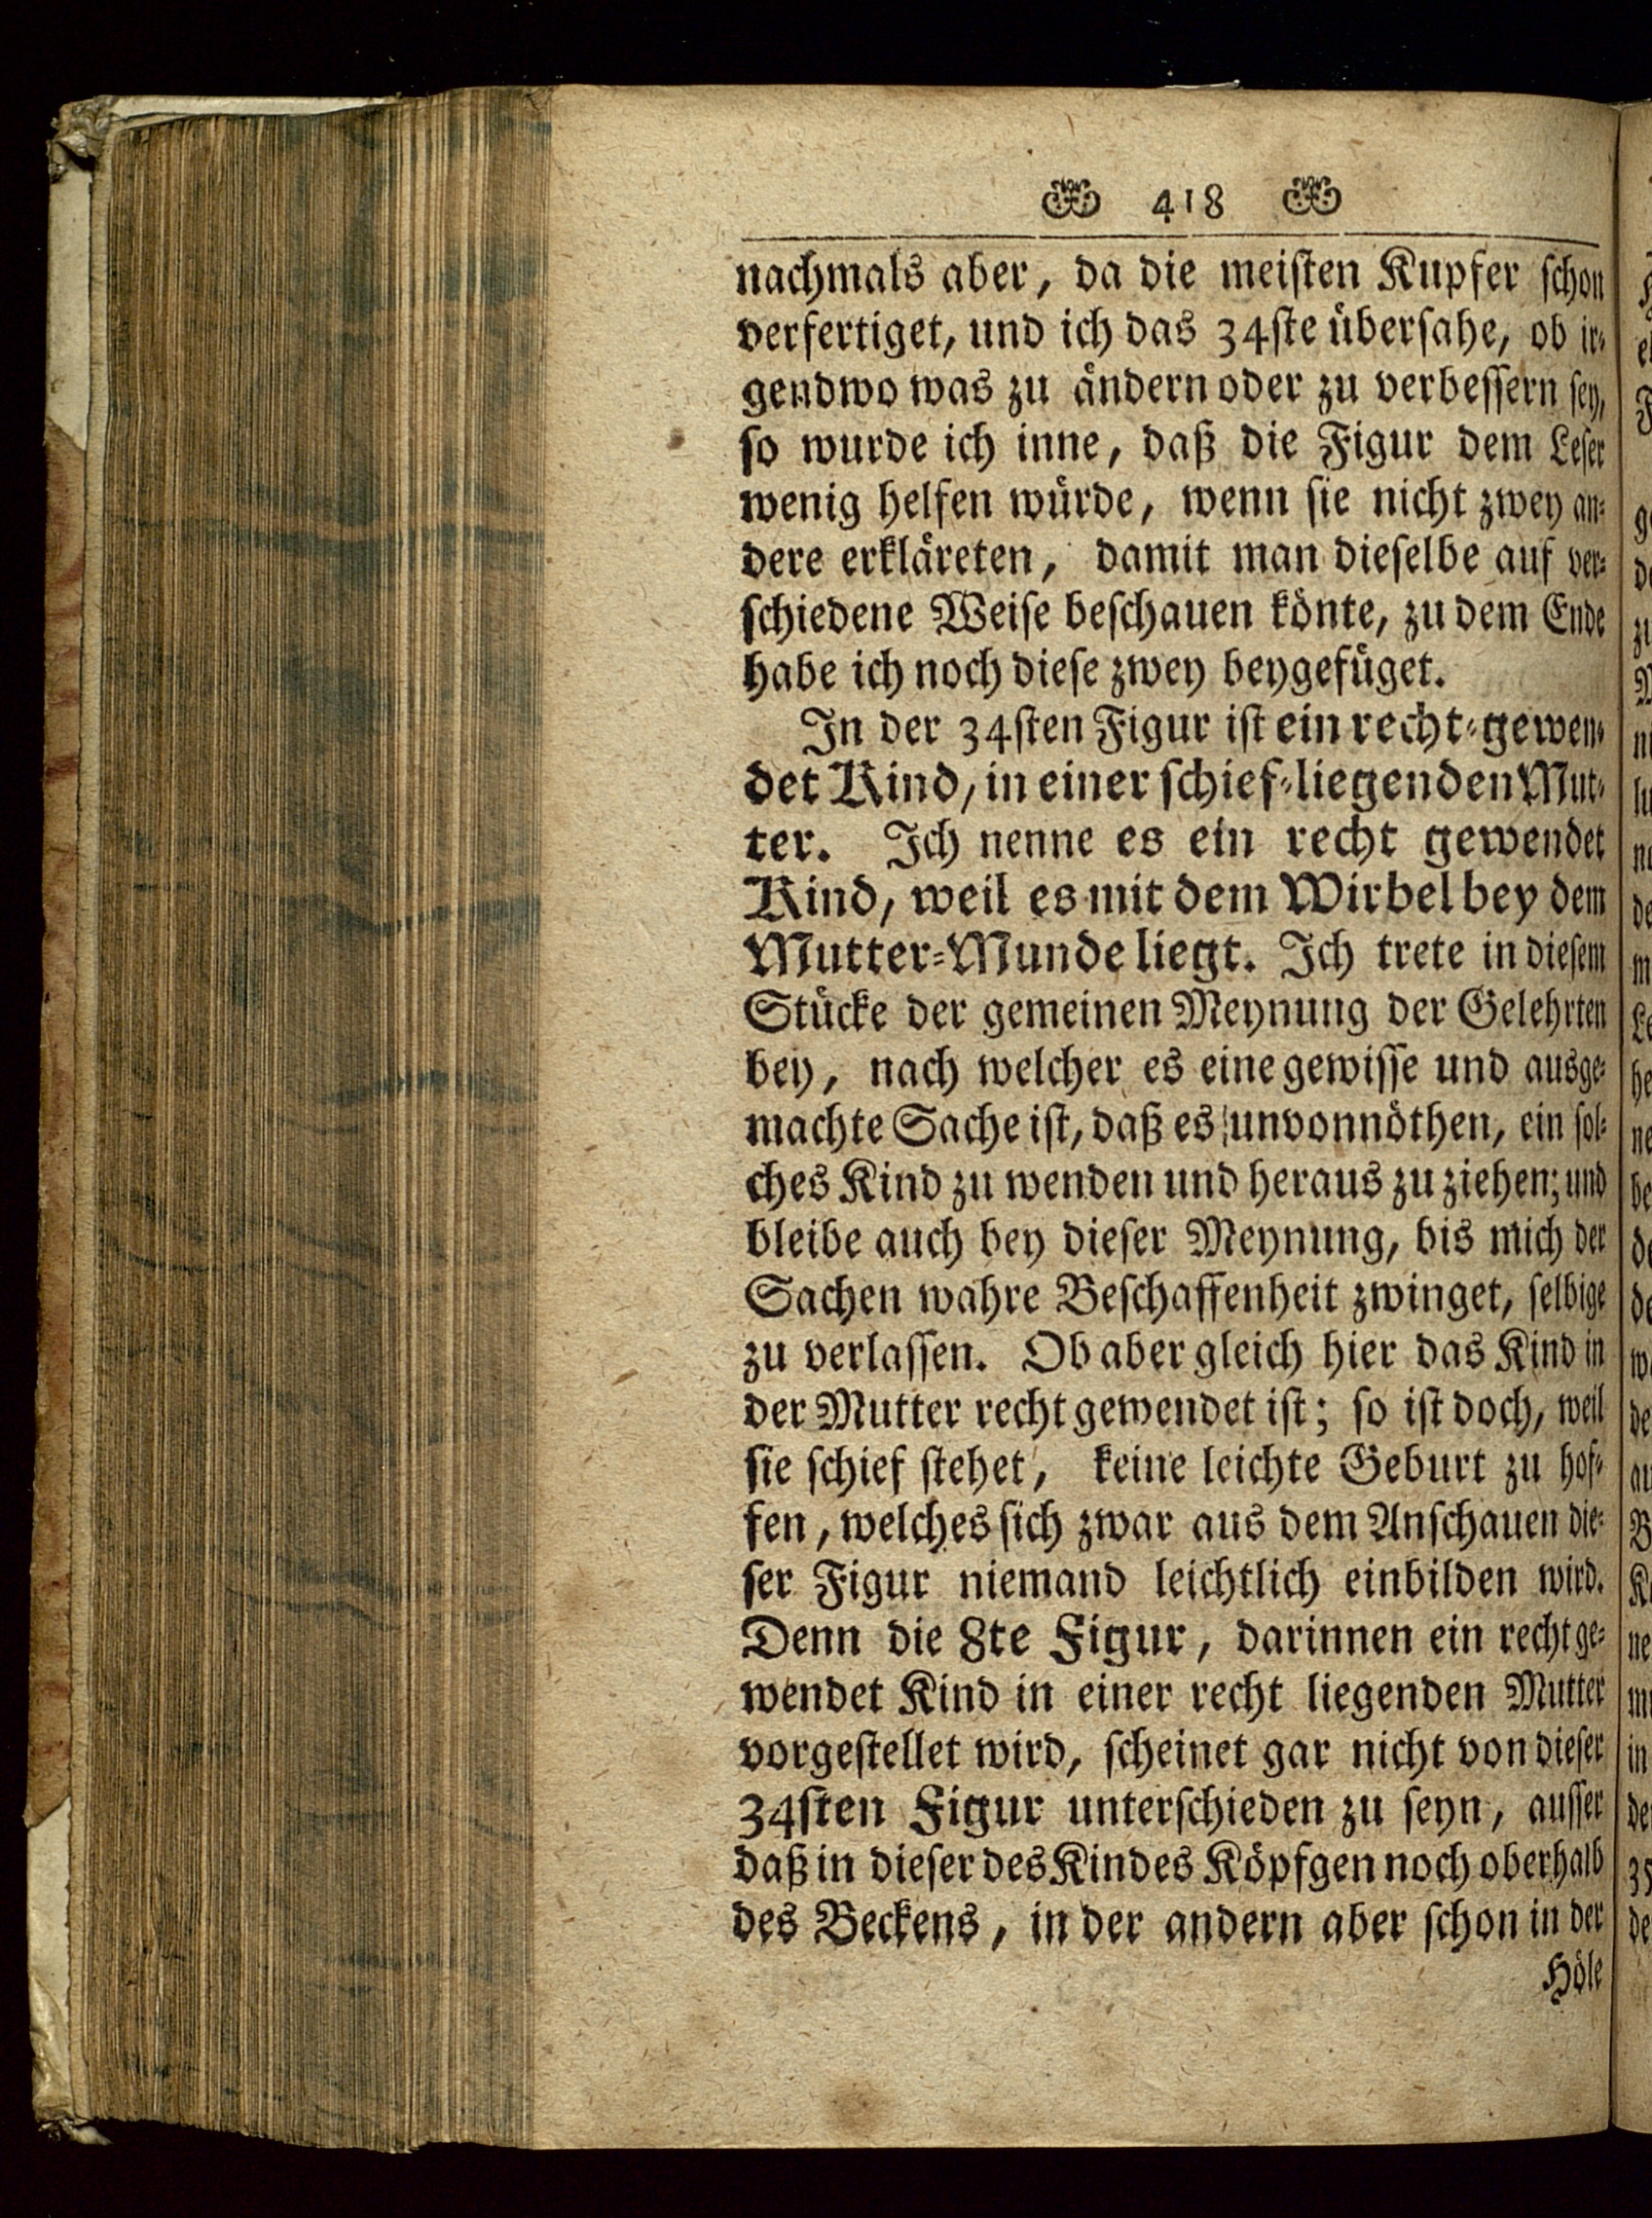 418
nachmals aber, da die meisten Kupfer schon
verfertiget, und ich das 34ste übersahe, ob ir-
gendwo was zu ändern oder zu verbessern sey,
so wurde ich inne, daß die Figur dem Leser
wenig helfen würde, wenn sie nicht zwey an-
dere erkläreten, damit man dieselbe auf ver-
schiedene Weise beschauen könte, zu dem Ende
habe ich noch diese zwey beygefüget.
In der 34sten Figur ist ein recht-gewen-
det Kind, in einer schief-liegenden Mut-
ter. Ich nenne es ein recht gewendet
Kind, weil es mit dem Wirbel bey dem
Mutter-Munde liegt. Ich trete in diesem
Stücke der gemeinen Meynung der Gelehrten
bey, nach welcher es eine gewisse und ausge-
machte Sache ist, daß es unvonnöthen, ein sol-
ches Kind zu wenden und heraus zu ziehen; und
bleibe auch bey dieser Meynung, bis mich der
Sachen wahre Beschaffenheit zwinget, selbige
zu verlassen. Ob aber gleich hier das Kind in
der Mutter recht gewendet ist; so ist doch, weil
sie schief stehet, keine leichte Geburt zu hof-
fen, welches sich zwar aus dem Anschauen die-
ser Figur niemand leichtlich einbilden wird.
Denn die 8te Figur, darinnen ein recht ge-
wendet Kind in einer recht liegenden Mutter
vorgestellet wird, scheinet gar nicht von dieser
34sten Figur unterschieden zu seyn, ausser
daß in dieser des Kindes Köpfgen noch oberhalb
des Beckens, in der andern aber schon in der
Höle